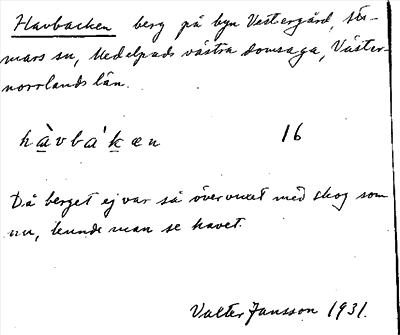 Havbacken berg på byn Vestergård, Stö-
mars sn, Medelpads västra domsaga, Väster-
norrlands län.
hàvbá'kæn 16
Då berget ej var så övervuxet med skog som
nu, kunde man se havet.
Valter Jansson 1931.